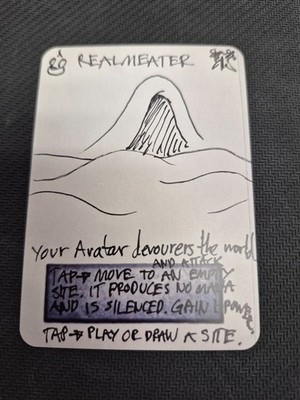 REALMEATER
Your Avatar devourers the world
AND ATTACK
TAP→ MOVE TO AN EMPTY
SITE. IT PRODUCES NO MANA
AND IS SILENCED. GAIN 1 POWER.
TAP→ PLAY OR DRAW A SITE.